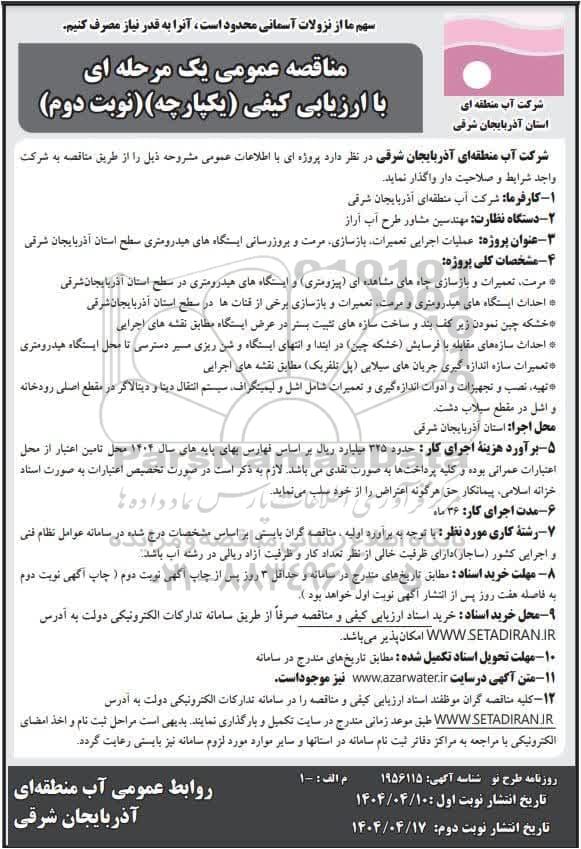 سهم ما از نزولات آسمانی محدود است ، آنرا به قدر نیاز مصرف کنیم.
شرکت آب منطقه ای
استان آذربایجان شرقی
مناقصه عمومی یک مرحله ای
با ارزیابی کیفی (یکپارچه)(نوبت دوم)
شرکت آب منطقه‌ای آذربایجان شرقی در نظر دارد پروژه ای با اطلاعات عمومی مشروحه ذیل را از طریق مناقصه به شرکت
واجد شرایط و صلاحیت دار واگذار نماید.
۱-کارفرما: شرکت آب منطقه‌ای آذربایجان شرقی
۲-دستگاه نظارت: مهندسین مشاور طرح آب آراز
۳-عنوان پروژه: عملیات اجرایی تعمیرات، بازسازی، مرمت و بروزرسانی ایستگاه های هیدرومتری سطح استان آذربایجان شرقی
۴-مشخصات کلی پروژه:
* مرمت، تعمیرات و بازسازی چاه های مشاهده ای (پیزومتری) و ایستگاه های هیدرومتری در سطح استان آذربایجان‌شرقی
* احداث ایستگاه های هیدرومتری و مرمت، تعمیرات و بازسازی برخی از قنات ها در سطح استان آذربایجان‌شرقی
*خشکه چین نمودن زیر کف بند و ساخت سازه های تثبیت بستر در عرض ایستگاه مطابق نقشه های اجرایی
* احداث سازه‌های مقابله با فرسایش (خشکه چین) در ابتدا و انتهای ایستگاه و شن ریزی مسیر دسترسی تا محل ایستگاه هیدرومتری
*تعمیرات سازه اندازه گیری جریان های سیلابی (پل تلفریک) مطابق نقشه های اجرایی
*تهیه، نصب و تجهیزات و ادوات اندازه‌گیری و تعمیرات شامل اشل و لیمنیگراف، سیستم انتقال دیتا و دیتالاگر در مقطع اصلی رودخانه
و اشل در مقطع سیلاب دشت.
محل اجرا: استان آذربایجان شرقی
۵-برآورد هزینهٔ اجرای کار : حدود ۳۲۵ میلیارد ریال بر اساس فهارس بهای پایه های سال ۱۴۰۴ محل تامین اعتبار از محل
اعتبارات عمرانی بوده و کلیه پرداخت‌ها به صورت نقدی می باشد. لازم به ذکر است در صورت تخصیص اعتبارات به صورت اسناد
خزانه اسلامی، پیمانکار حق هرگونه اعتراض را از خود سلب می‌نماید.
۶-مدت اجرای کار: ۳۶ ماه
۷-رشتهٔ کاری مورد نظر : با توجه به برآورد اولیه ، مناقصه گران بایستی بر اساس مشخصات درج شده در سامانه عوامل نظام فنی
و اجرایی کشور (ساجار)دارای ظرفیت خالی از نظر تعداد کار و ظرفیت آزاد ریالی در رشته آب باشد.
۸- مهلت خرید اسناد : مطابق تاریخ‌های مندرج در سامانه و حداقل ۳ روز پس از چاپ آگهی نوبت دوم ( چاپ آگهی نوبت دوم
به فاصله هفت روز پس از انتشار آگهی نوبت اول خواهد بود ).
۹-محل خرید اسناد : خرید اسناد ارزیابی کیفی و مناقصه صرفاً از طریق سامانه تدارکات الکترونیکی دولت به آدرس
WWW.SETADIRAN.IR امکان‌پذیر می‌باشد.
۱۰-مهلت تحویل اسناد تکمیل شده : مطابق تاریخ‌های مندرج در سامانه
۱۱-متن آگهی در سایت www.azarwater.ir نیز موجود است.
۱۲-کلیه مناقصه گران موظفند اسناد ارزیابی کیفی و مناقصه را در سامانه تدارکات الکترونیکی دولت به آدرس
WWW.SETADIRAN.IR طبق موعد زمانی مندرج در سایت تکمیل و بارگذاری نمایند. بدیهی است مراحل ثبت نام و اخذ امضای
الکترونیکی با مراجعه به مراکز دفاتر ثبت نام سامانه در استانها و سایر موارد مورد لزوم سامانه نیز بایستی رعایت گردد.
روزنامه طرح نو شناسه آگهی: ۱۹۵۶۱۱۵ م الف : ۱-
تاریخ انتشار نوبت اول : ۱۴۰۴/۰۴/۱۰
تاریخ انتشار نوبت دوم: ۱۴۰۴/۰۴/۱۷
روابط عمومی آب منطقه‌ای
آذربایجان شرقی